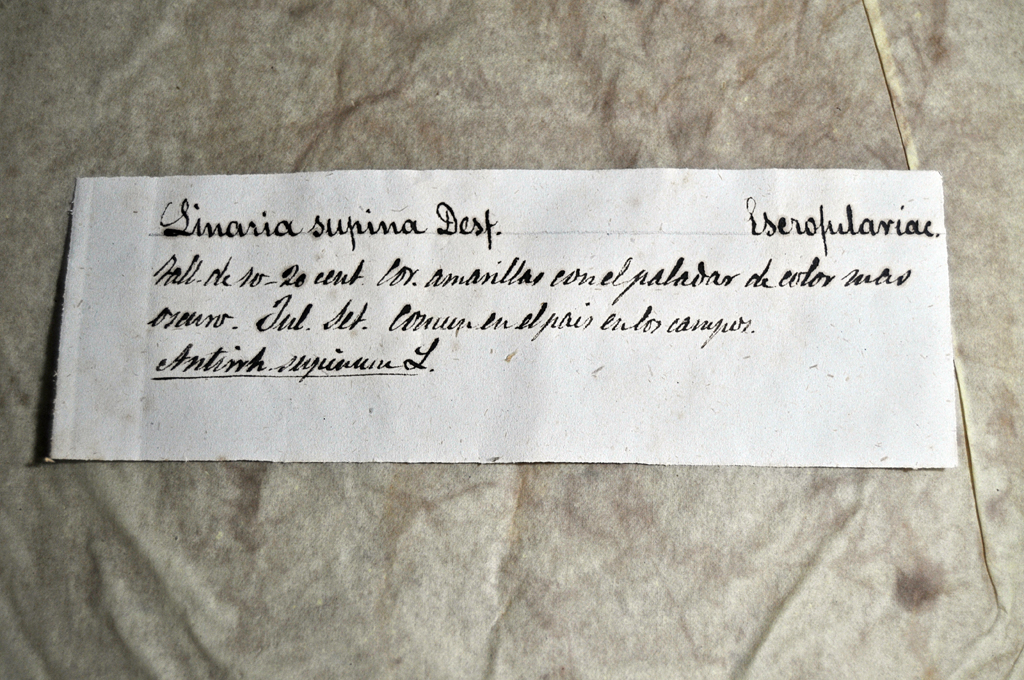 Linaria supina Desf. Escrofulariac.
Tall. de 10-20 cent. Cor. amarillas con el paladar de color mas
oscuro. Jul. Set. Comun en el pais en los campos.
Antirrh. supinum L.